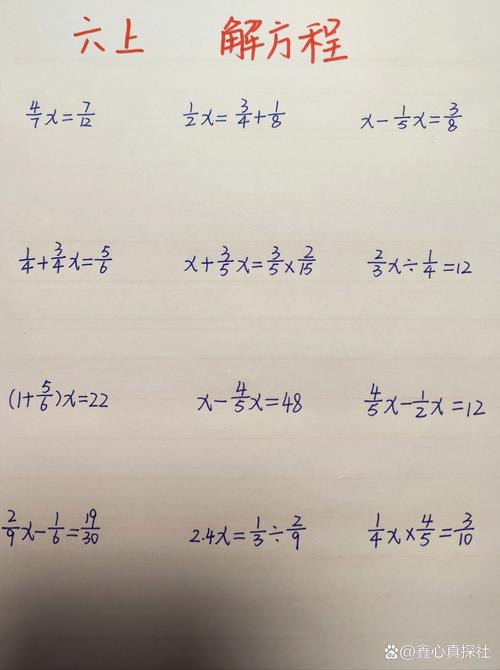 六上 解方程
4/7 x = 7/12  1/2 x = 3/4 + 1/8  x - 1/5 x = 3/8
1/4 + 3/4 x = 5/6  x + 3/5 x = 3/5 × 2/15  2/3 x ÷ 1/4 = 12
(1 + 5/6) x = 22  x - 4/5 x = 48  4/5 x - 1/2 x = 12
2/9 x - 1/6 = 19/30  2.4x = 1/3 ÷ 2/9  1/4 x × 4/5 = 3/10
@鑫心真探社